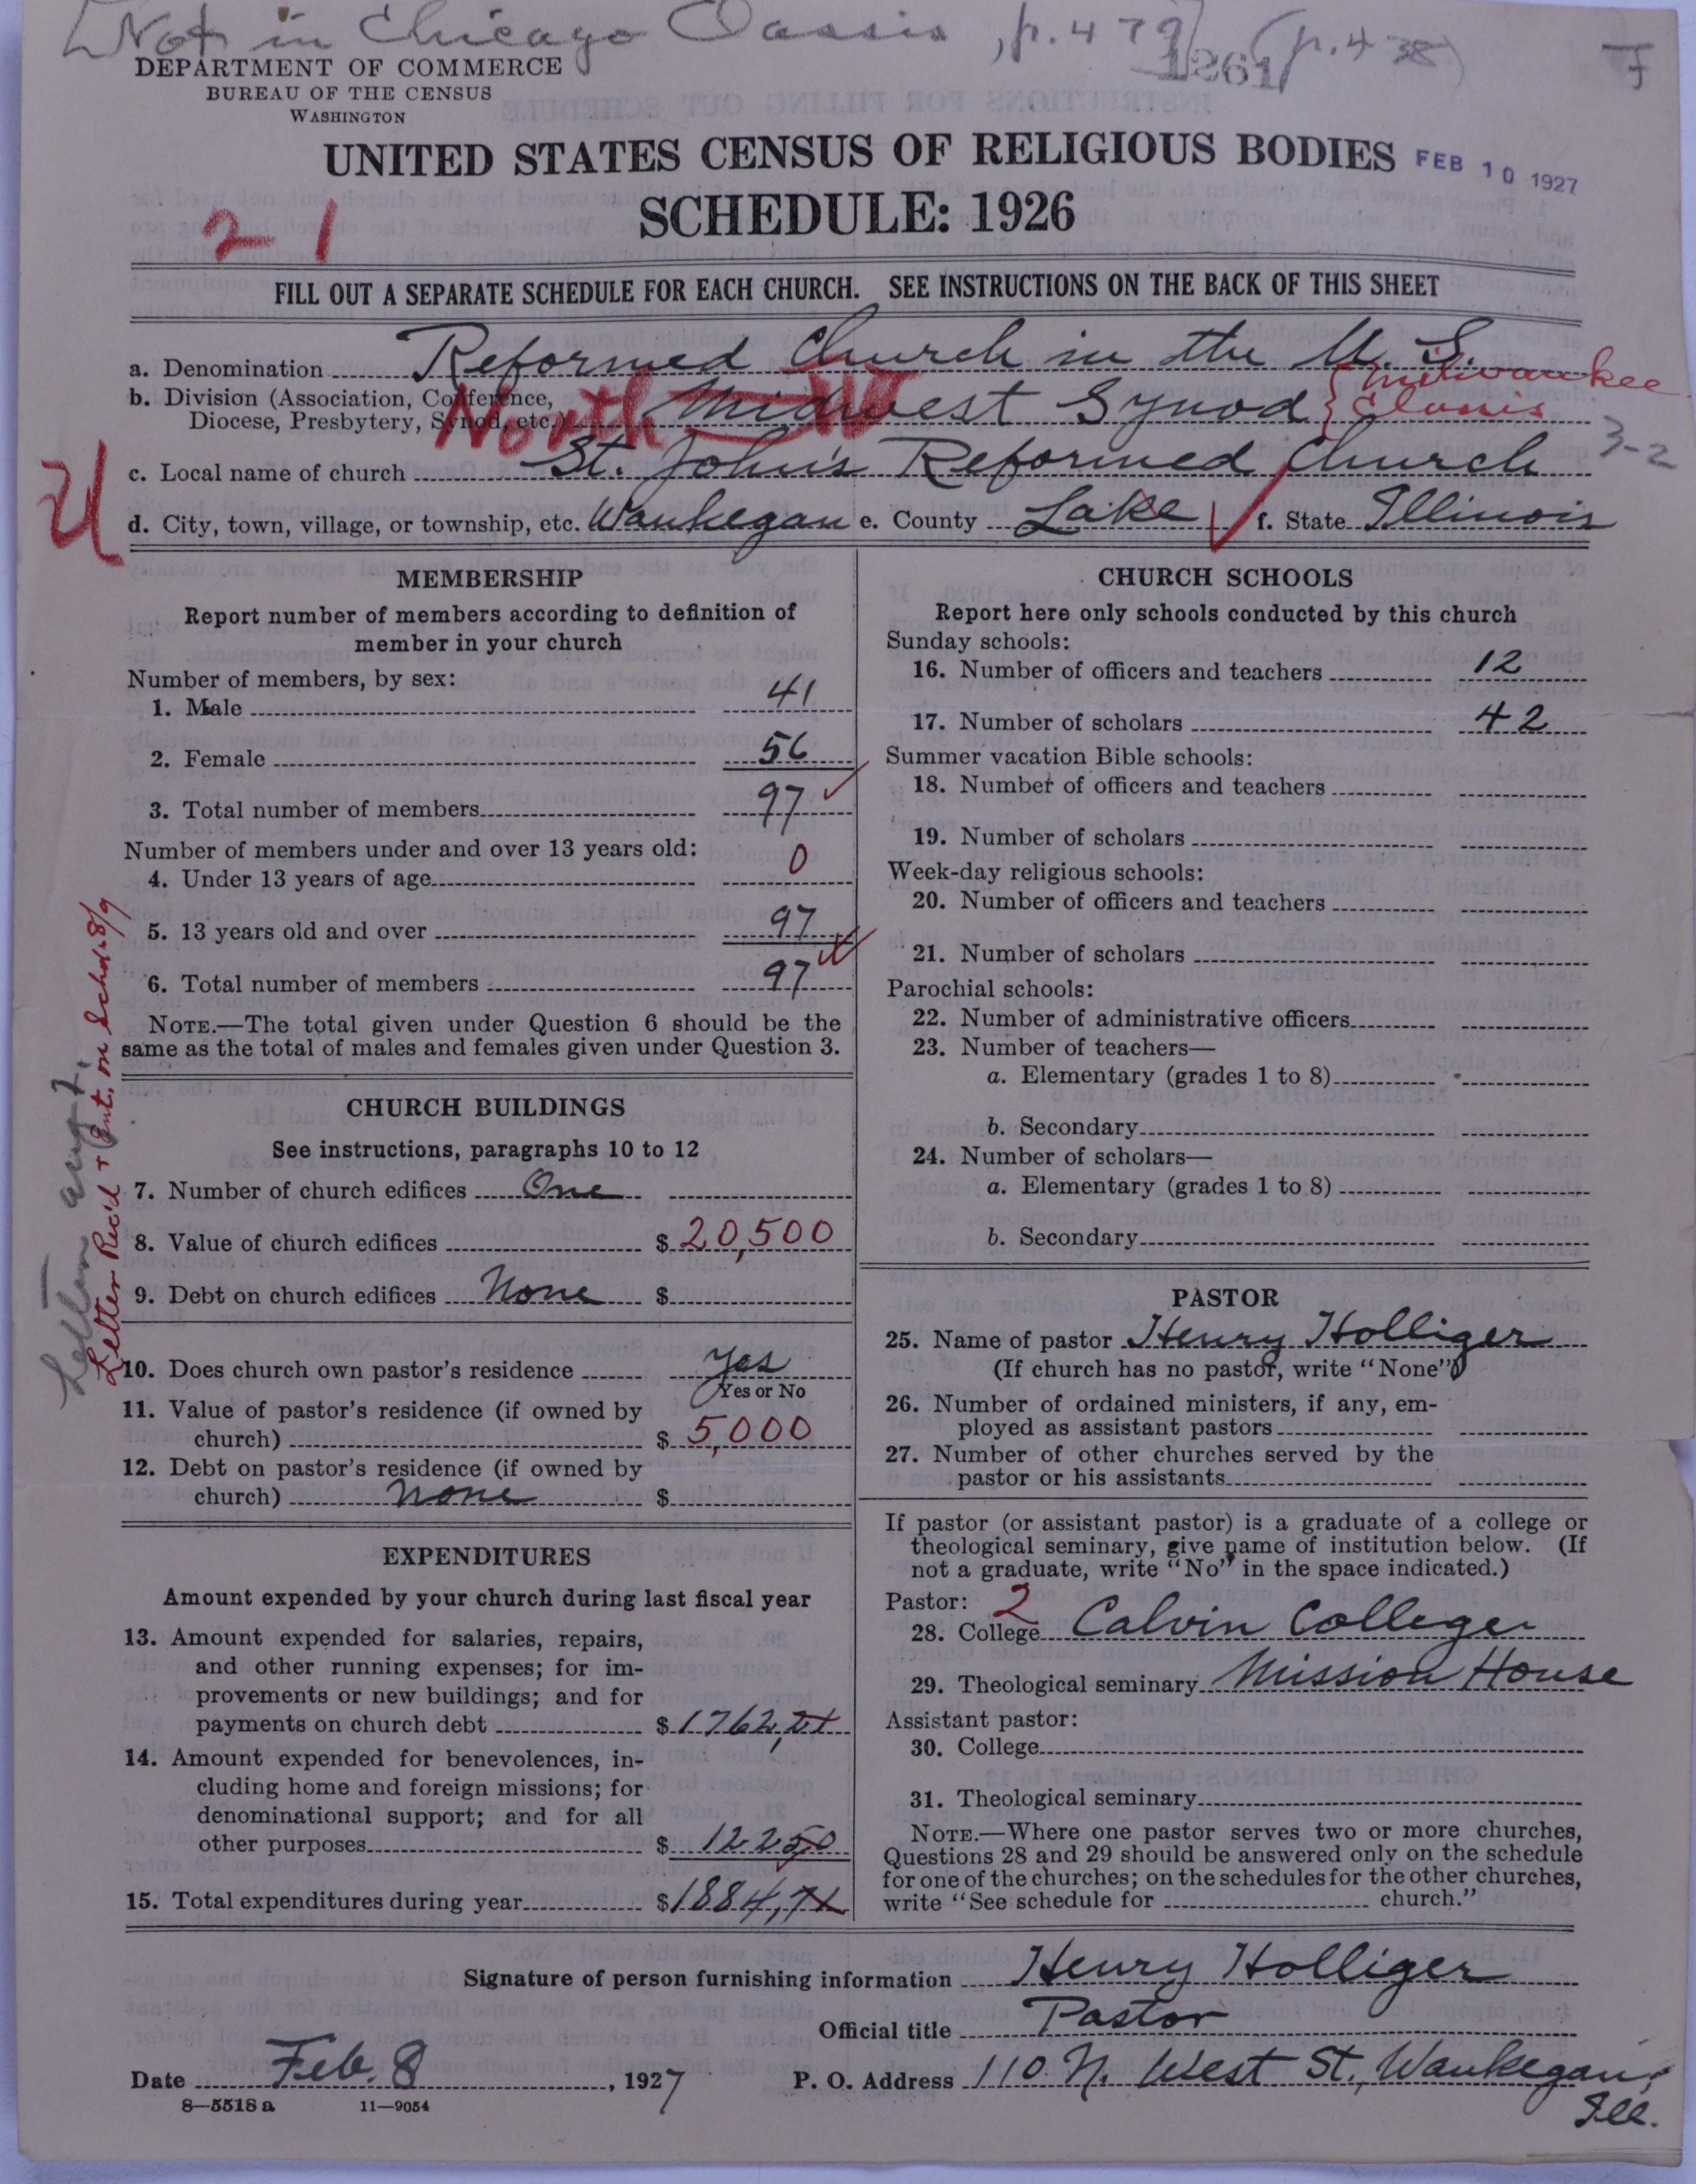 [Not in Chicago Classis, p. 479] (p. 438)
1261
F
DEPARTMENT OF COMMERCE
BUREAU OF THE CENSUS
WASHINGTON
UNITED STATES CENSUS OF RELIGIOUS BODIES FEB 10 1927
SCHEDULE: 1926
2 1
FILL OUT A SEPARATE SCHEDULE FOR EACH CHURCH. SEE INSTRUCTIONS ON THE BACK OF THIS SHEET
a. Denomination Reformed Church in the U. S.
b. Division (Association, Conference, Diocese, Presbytery, Synod, etc.) Midwest Synod { Milwaukee Classis
North W
3-2
c. Local name of church St. John's Reformed Church
U
d. City, town, village, or township, etc. Waukegan e. County Lake f. State Illinois
MEMBERSHIP
Report number of members according to definition of
member in your church
Number of members, by sex:
1. Male 41
2. Female 56
3. Total number of members 97
Number of members under and over 13 years old:
4. Under 13 years of age 0
5. 13 years old and over 97
6. Total number of members 97
NOTE.—The total given under Question 6 should be the
same as the total of males and females given under Question 3.
CHURCH BUILDINGS
See instructions, paragraphs 10 to 12
7. Number of church edifices One
8. Value of church edifices $ 20,500
9. Debt on church edifices None $
10. Does church own pastor's residence yes
Yes or No
11. Value of pastor's residence (if owned by
church) $ 5,000
12. Debt on pastor's residence (if owned by
church) none $
Letter Rec'd + Ent. on Sched. 8/9
EXPENDITURES
Amount expended by your church during last fiscal year
13. Amount expended for salaries, repairs,
and other running expenses; for im-
provements or new buildings; and for
payments on church debt $ 1762,21
14. Amount expended for benevolences, in-
cluding home and foreign missions; for
denominational support; and for all
other purposes $ 122 50
15. Total expenditures during year $ 1884,71
CHURCH SCHOOLS
Report here only schools conducted by this church
Sunday schools:
16. Number of officers and teachers 12
17. Number of scholars 42
Summer vacation Bible schools:
18. Number of officers and teachers
19. Number of scholars
Week-day religious schools:
20. Number of officers and teachers
21. Number of scholars
Parochial schools:
22. Number of administrative officers
23. Number of teachers—
a. Elementary (grades 1 to 8)
b. Secondary
24. Number of scholars—
a. Elementary (grades 1 to 8)
b. Secondary
PASTOR
25. Name of pastor Henry Holliger
(If church has no pastor, write "None")
26. Number of ordained ministers, if any, em-
ployed as assistant pastors
27. Number of other churches served by the
pastor or his assistants
If pastor (or assistant pastor) is a graduate of a college or
theological seminary, give name of institution below. (If
not a graduate, write "No" in the space indicated.)
Pastor: 2
28. College Calvin College
29. Theological seminary Mission House
Assistant pastor:
30. College
31. Theological seminary
NOTE.—Where one pastor serves two or more churches,
Questions 28 and 29 should be answered only on the schedule
for one of the churches; on the schedules for the other churches,
write "See schedule for church."
Signature of person furnishing information Henry Holliger
Official title Pastor
Date Feb. 8, 1927 P. O. Address 110 N. West St., Waukegan,
Ill.
8—5518 a 11—9054